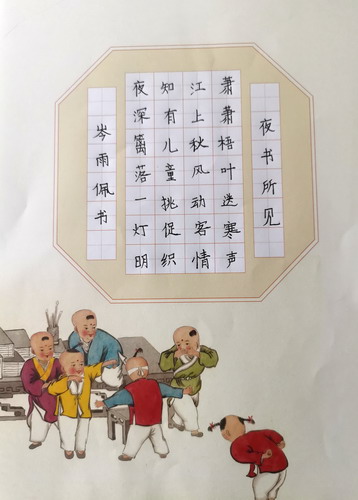 夜书所见
萧萧梧叶送寒声
江上秋风动客情
知有儿童挑促织
夜深篱落一灯明
岑雨佩书